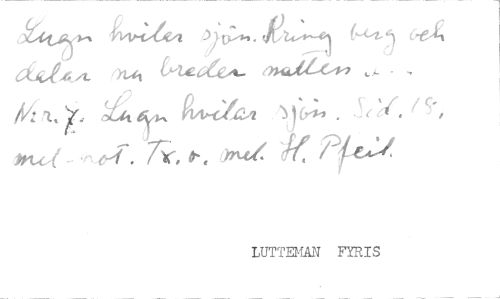 Lugn hvilar sjön. Kring berg och
dalar nu breder natten...
N:r. 7. Lugn hvilar sjön. Sid. 15,
mel-not. Tx. o. mel. H. Pfeil.
LUTTEMAN FYRIS